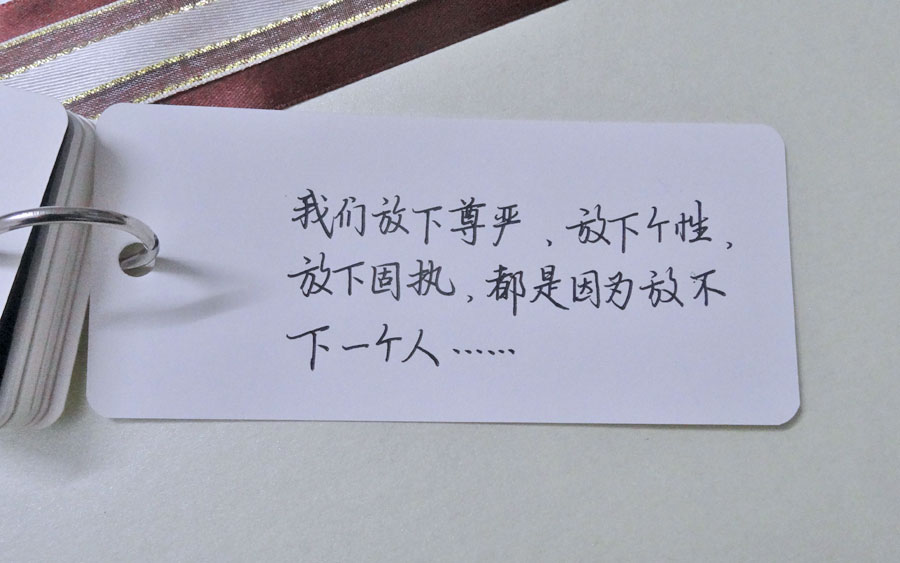 我们放下尊严，放下个性，
放下固执，都是因为放不
下一个人……